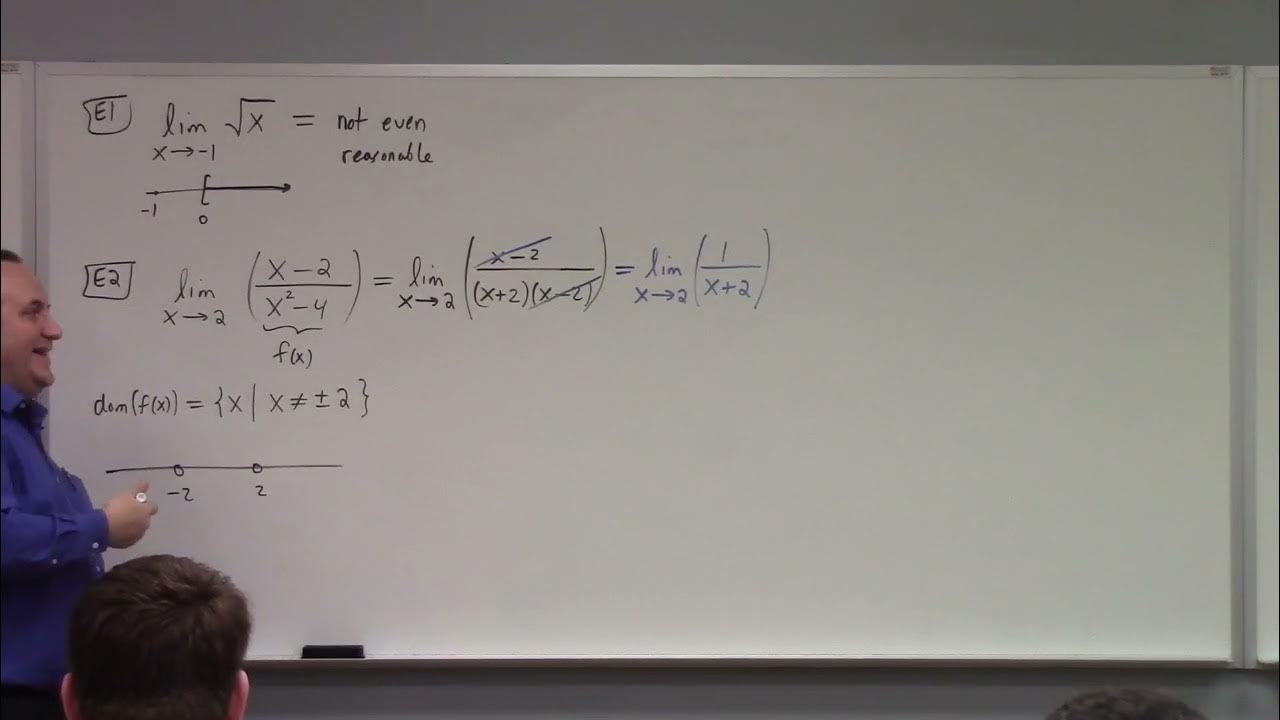 E1 lim √x = not even
x→-1 reasonable
-1 0
E2 lim (x-2 / x²-4) = lim (x-2 / (x+2)(x-2)) = lim (1 / x+2)
x→2 x→2 x→2
f(x)
dom(f(x)) = {x | x ≠ ±2}
-2 2